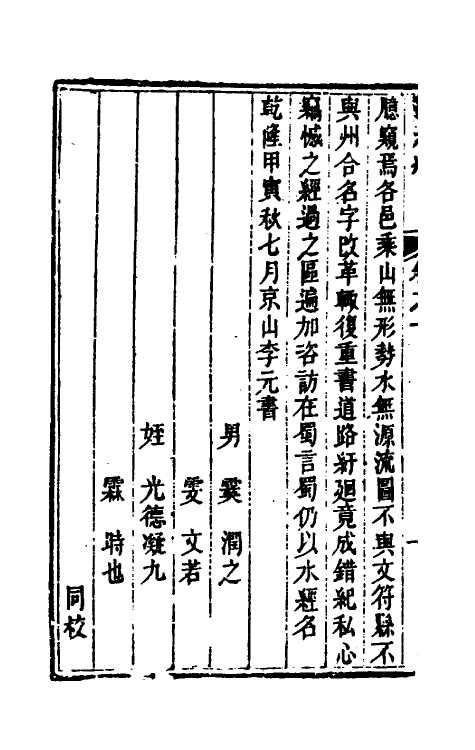 臆窺焉各邑乘山無形勢水無源流圖不與文符縣不
與州合名字改革輙復重書道路紆廻竟成錯紀私心
竊憾之經過之區遍加咨訪在蜀言蜀仍以水經名
乾隆甲寅秋七月京山李元書
男 霙 潤之
雯 文若
姪 光德凝九
霖 時也
同校